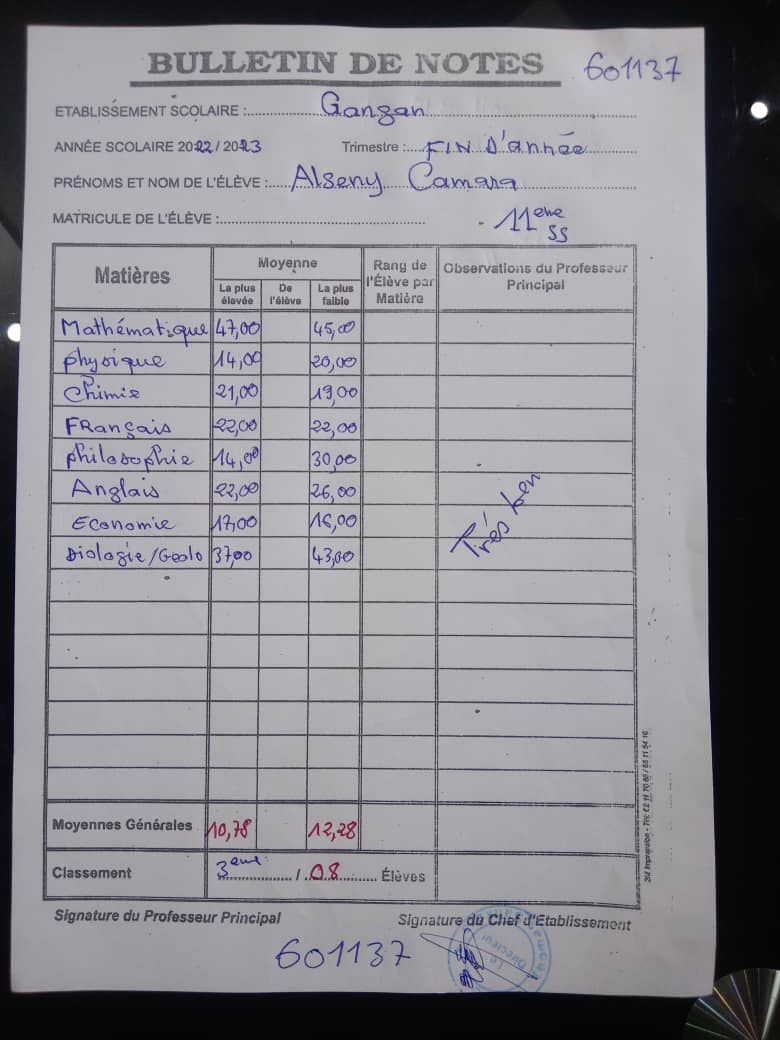 BULLETIN DE NOTES 601137
ETABLISSEMENT SCOLAIRE : Gangan
ANNÉE SCOLAIRE 2022 / 2023 Trimestre : FIN D'année
PRÉNOMS ET NOM DE L'ÉLÈVE : Alseny Camara
MATRICULE DE L'ÉLÈVE : 11eme
SS
Matières Moyenne Rang de l'Élève par Matière Observations du Professeur Principal
La plus élevée De l'élève La plus faible
Mathématique 47,00 45,00
physique 14,00 20,00
Chimie 21,00 19,00
FRançais 22,00 22,00
philosophie 14,00 30,00
Anglais 22,00 26,00
Economie 17,00 16,00
Biologie/Geolo 37,00 43,00
Trés ben
Moyennes Générales 10,78 12,28
Classement 3eme / 08 Élèves
Signature du Professeur Principal Signature du Chef d'Etablissement
601137
Le Directeur